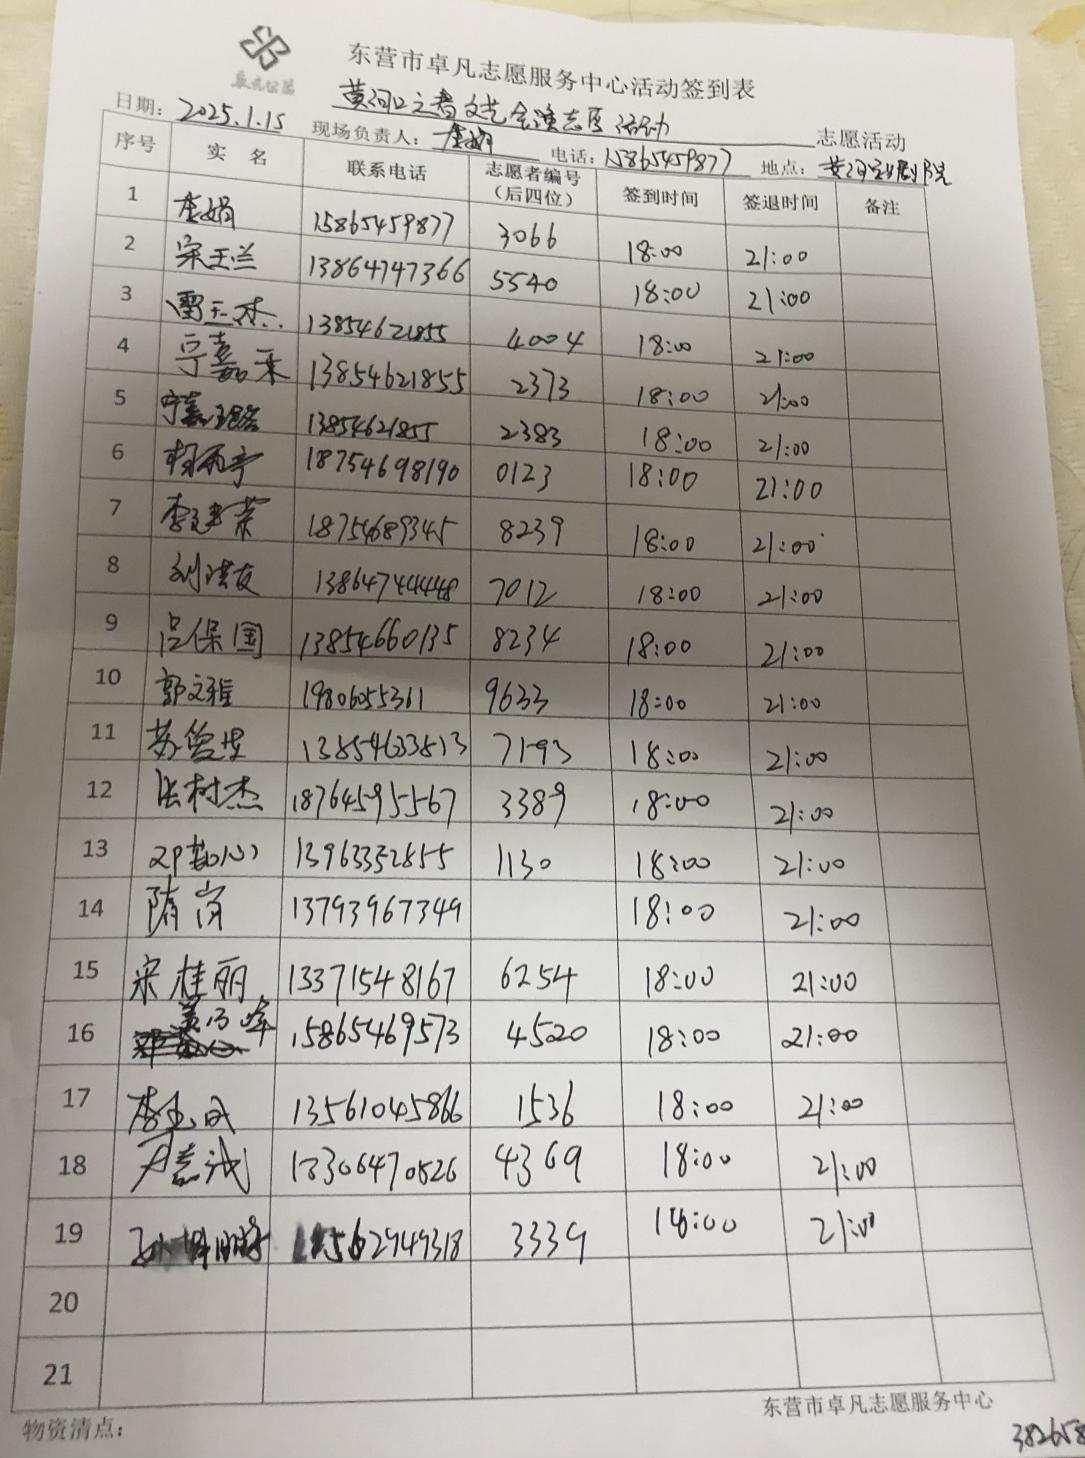 卓凡公益
东营市卓凡志愿服务中心活动签到表
黄河口之春文艺会演志愿活动 志愿活动
日期: 2025.1.15 现场负责人: 李娟 电话: 15865459877 地点: 黄河剧院
序号 实名 联系电话 志愿者编号(后四位) 签到时间 签退时间 备注
1 李娟 15865459877 3066 18:00 21:00
2 宋玉兰 13864747366 5540 18:00 21:00
3 13854621855 4004 18:00 21:00
4 宁嘉禾 13854621855 2373 18:00 21:00
5 宁嘉璐 13854621855 2383 18:00 21:00
6 18754698190 0123 18:00 21:00
7 李建荣 18754689345 8239 18:00 21:00
8 刘洪友 13864744448 7012 18:00 21:00
9 吕保国 13854660135 8234 18:00 21:00
10 郭文雅 1980655361 9633 18:00 21:00
11 苏曾里 13854633813 7193 18:00 21:00
12 张树杰 18764595567 3389 18:00 21:00
13 13963352855 1130 18:00 21:00
14 隋岗 13793967349 18:00 21:00
15 宋桂丽 13371548167 6254 18:00 21:00
16 15865469573 4520 18:00 21:00
17 13561045866 1536 18:00 21:00
18 尹志诚 13306470526 4369 18:00 21:00
19 15562949318 3339 18:00 21:00
20
21
东营市卓凡志愿服务中心
物资清点:
382658